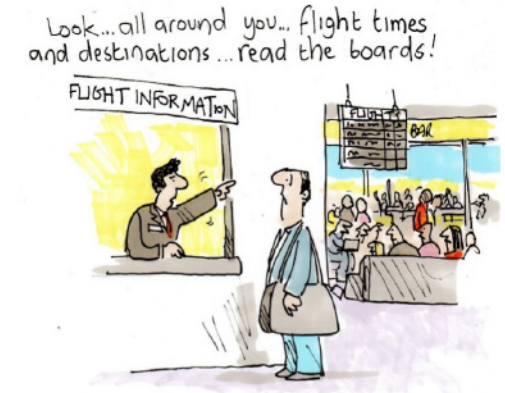 Look...all around you... flight times
and destinations...read the boards!
FLIGHT INFORMATION
FLIGHTS
BAR